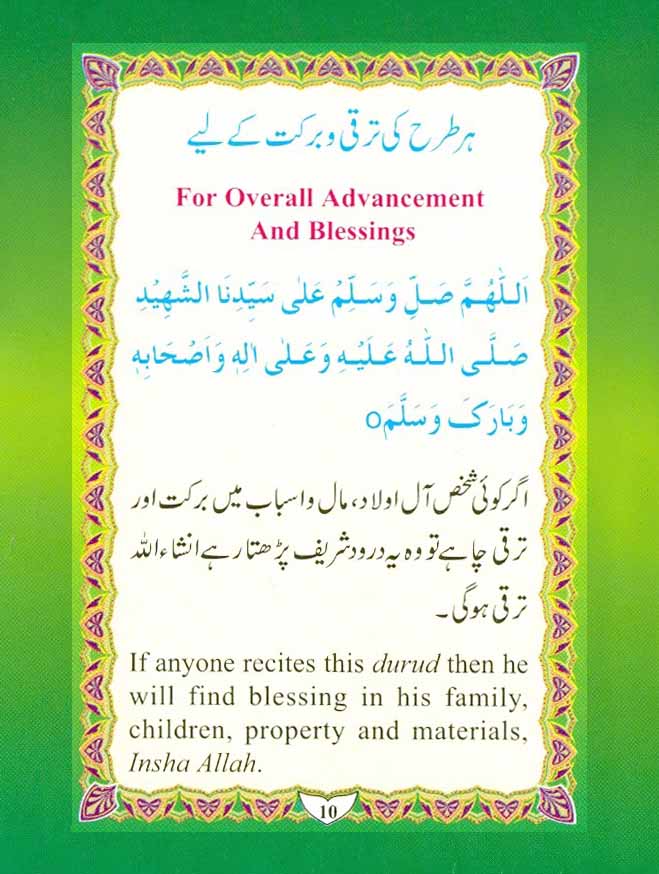 ہر طرح کی ترقی و برکت کے لیے
For Overall Advancement
And Blessings
اَللّٰهُمَّ صَلِّ وَسَلِّمْ عَلٰى سَيِّدِنَا الشَّهِيْدِ
صَلَّى اللّٰهُ عَلَيْهِ وَعَلٰى اٰلِهٖ وَاَصْحَابِهٖ
وَبَارَکَ وَسَلَّمَo
اگر کوئی شخص آل اولاد، مال و اسباب میں برکت اور
ترقی چاہے تو وہ یہ درود شریف پڑھتا رہے انشاءاللہ
ترقی ہوگی۔
If anyone recites this durud then he
will find blessing in his family,
children, property and materials,
Insha Allah.
10